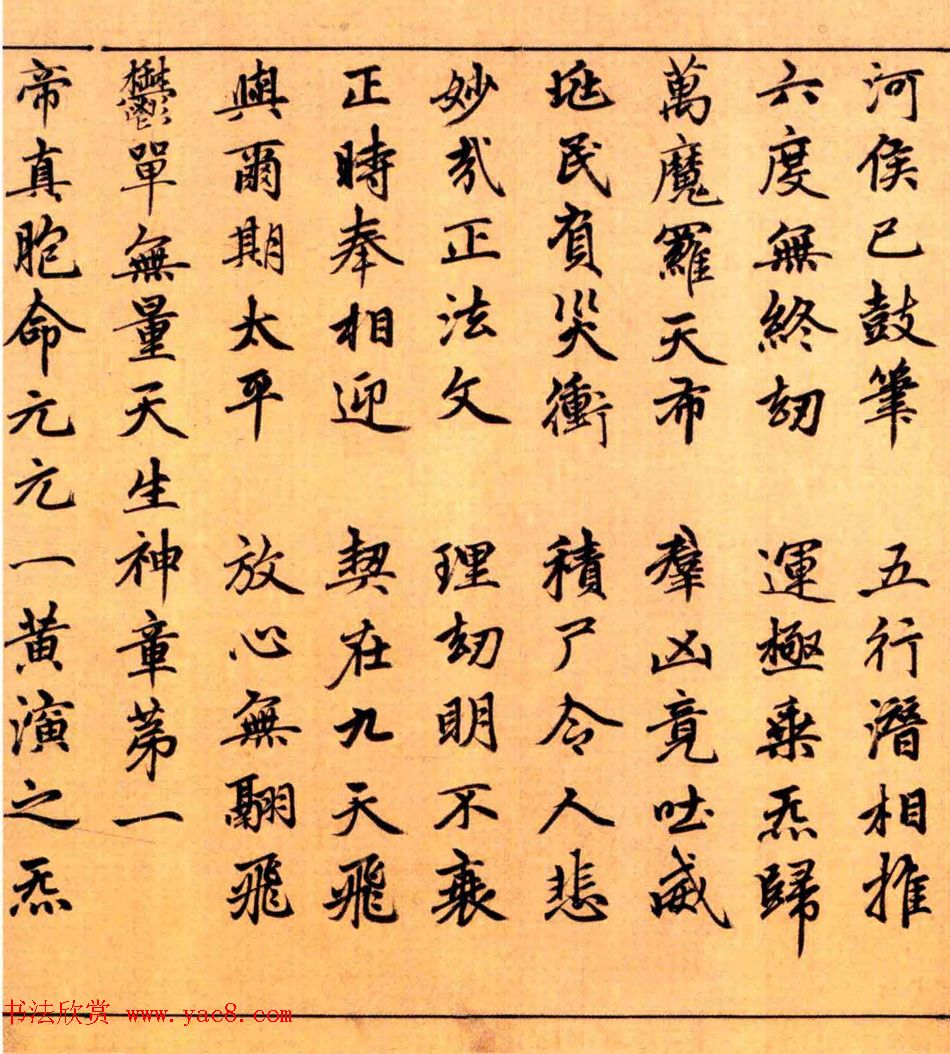 河侯已鼓筆 五行潛相推
六度無終劫 運極乘炁歸
萬魔羅天布 羣凶竟吐威
民有災衝 積尸令人悲
妙哉正法文 理劫明不衰
正時奉相迎 契在九天飛
與爾期太平 放心無翮飛
鬱單無量天生神章第一
帝真胞命元元一黃演之炁
书法欣赏 www.yac8.com